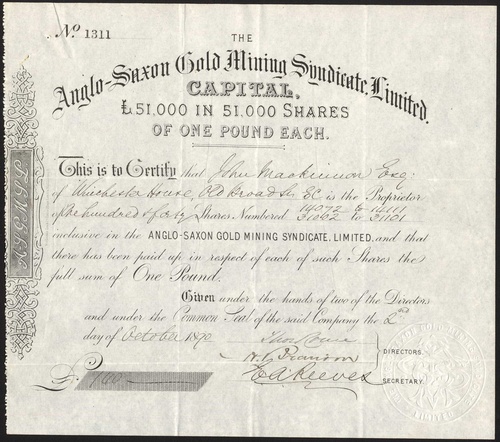 No. 1311
THE
Anglo-Saxon Gold Mining Syndicate, Limited.
CAPITAL,
£51,000 IN 51,000 SHARES
OF ONE POUND EACH.
This is to Certify that John Mackinnon Esq:
of Winchester House, Old Broad St, EC is the Proprietor
of One hundred & forty Shares Numbered 31062 to 31101
inclusive in the ANGLO-SAXON GOLD MINING SYNDICATE, LIMITED, and that
there has been paid up in respect of each of such Shares the
full sum of One Pound.
Given under the hands of two of the Directors
and under the Common Seal of the said Company the 2nd
day of October 1890
DIRECTORS.
E A Reeves
SECRETARY.
£
LIMITED